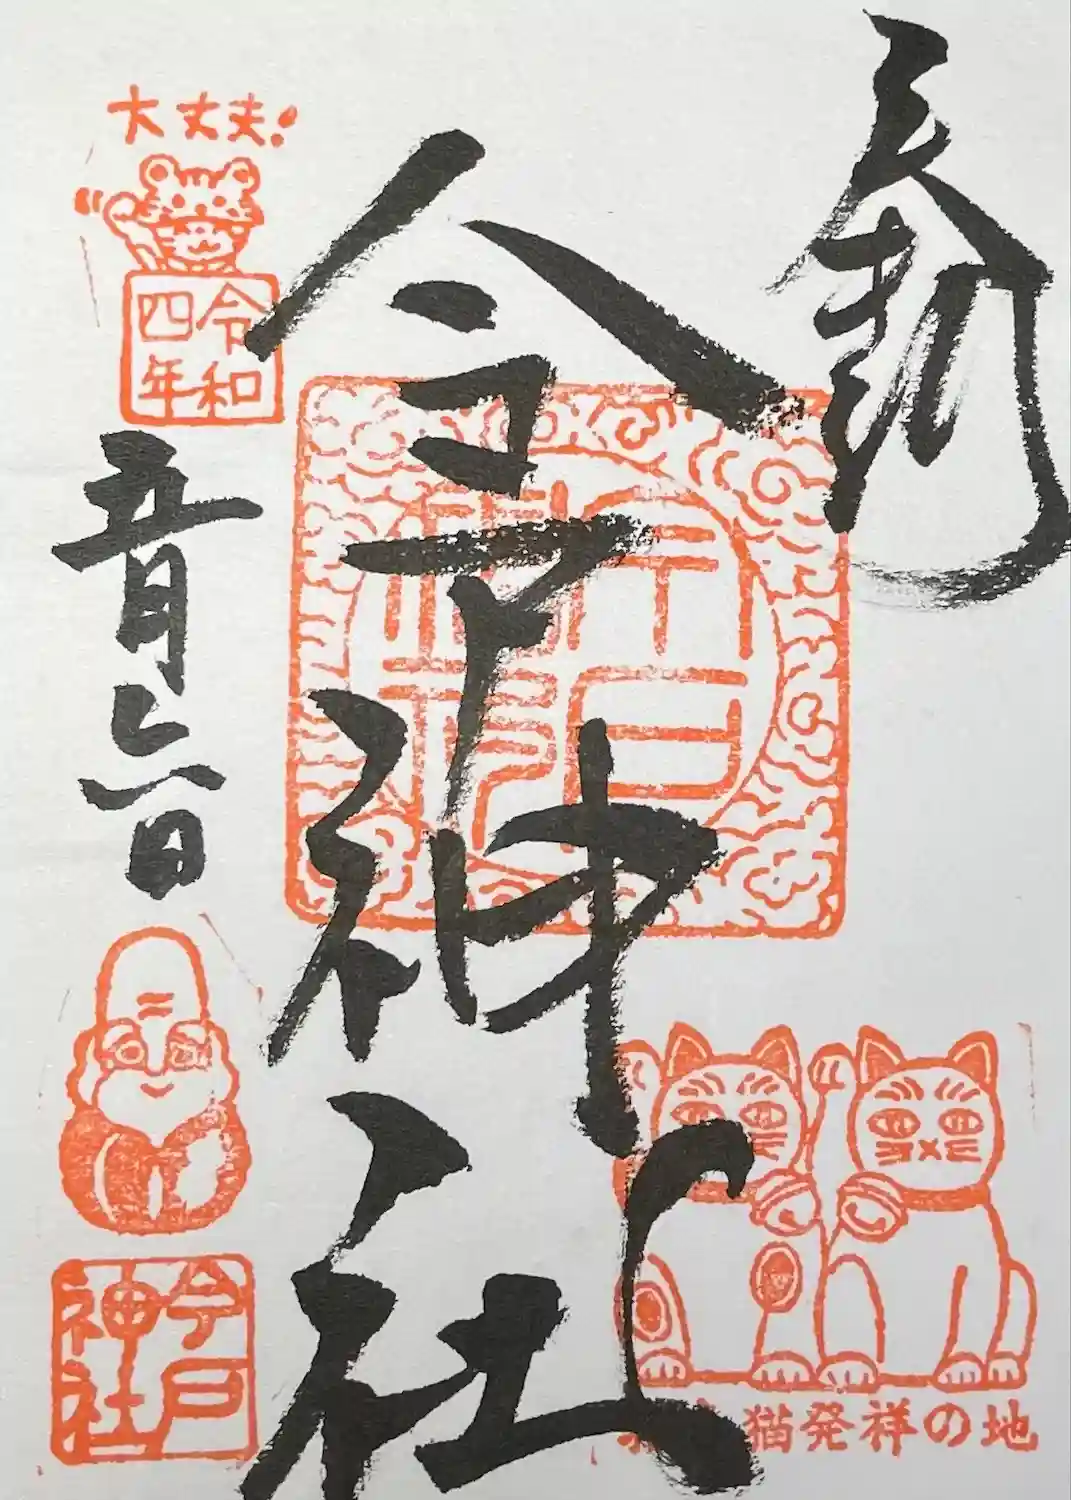 奉拝
今戸神社
大丈夫!
令和
四年
五月六日
今戸
神社
招き猫発祥の地